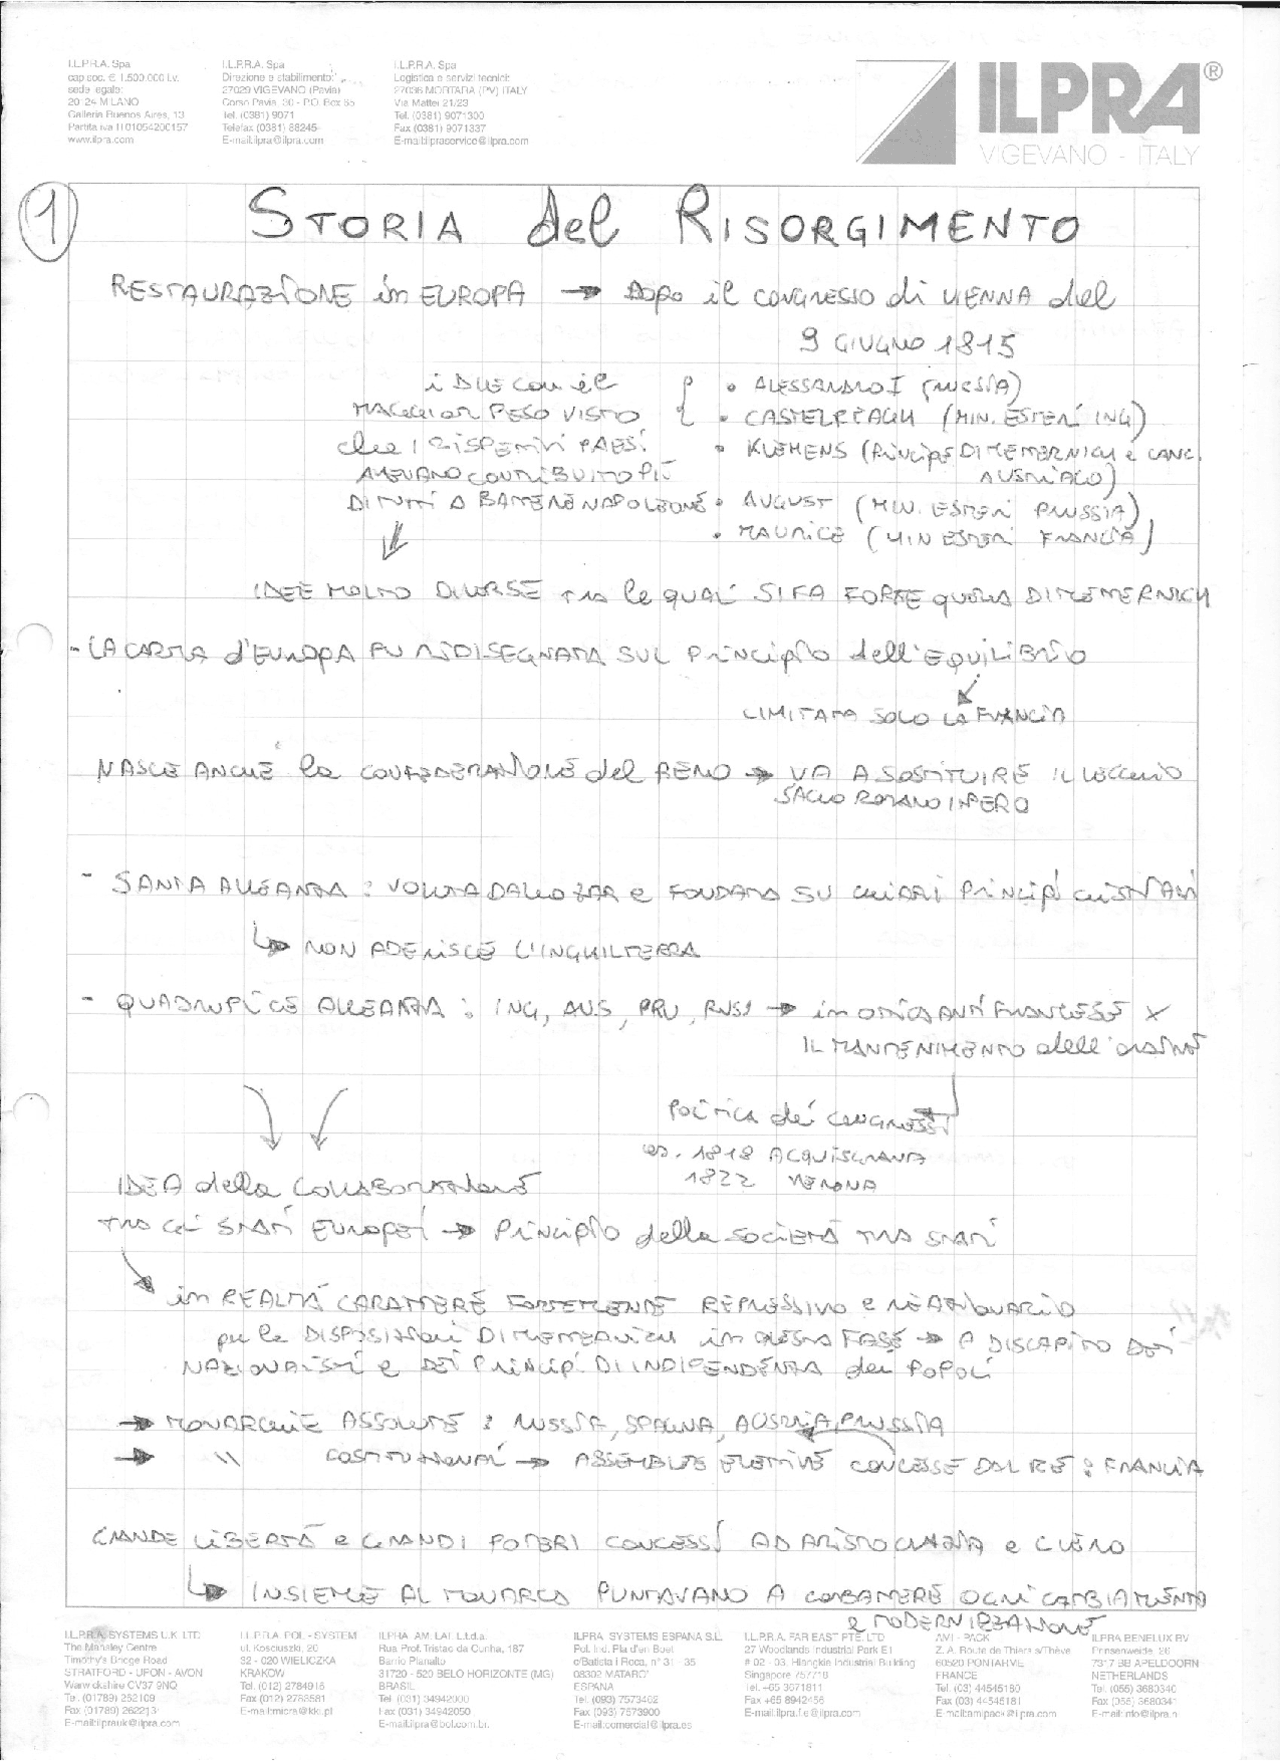 I.L.P.R.A. Spa
cap soc. € 1.500.000 i.v.
sede legale:
20124 MILANO
Galleria Buenos Aires, 13
Partita iva IT01054200157
www.ilpra.com
I.L.P.R.A. Spa
Direzione e stabilimento:
27029 VIGEVANO (Pavia)
Corso Pavia, 30 - P.O. Box 65
Tel. (0381) 9071
Telefax (0381) 88245
E-mail:ilpra@ilpra.com
I.L.P.R.A. Spa
Logistica e servizi tecnici:
27036 MORTARA (PV) ITALY
Via Mattei 21/23
Tel. (0381) 9071300
Fax (0381) 9071337
E-mail:ilpraservice@ilpra.com
ILPRA®
VIGEVANO - ITALY
1
STORIA del RISORGIMENTO
RESTAURAZIONE in EUROPA → Dopo il CONGRESSO di VIENNA del
9 GIUGNO 1815
i DUE con il
MAGGIOR PESO VISTO
che i RISPETTIVI PAESI
AVEVANO CONTRIBUITO PIÙ
DI TUTTI A BATTERE NAPOLEONE
• ALESSANDRO I (RUSSIA)
• CASTELREAGH (MIN. ESTERI ING)
• KLEMENS (PRINCIPE DI METTERNICH e CANC.
AUSTRIACO)
• AUGUST (MIN. ESTERI PRUSSIA)
• MAURICE (MIN ESTERI FRANCIA)
IDEE MOLTO DIVERSE tra le QUALI SI FA FORTE QUELLA DI METTERNICH
- LA CARTA d'EUROPA FU RIDISEGNATA SUL PRINCIPIO dell'EQUILIBRIO
LIMITATA SOLO LA FRANCIA
NASCE ANCHE la CONFEDERAZIONE del RENO → VA A SOSTITUIRE IL VECCHIO
SACRO ROMANO IMPERO
- SANTA ALLEANZA : VOLUTA DALLO ZAR e FONDATA SU CHIARI PRINCIPI CRISTIANI
↳ NON ADERISCE L'INGHILTERRA
- QUADRUPLICE ALLEANZA : ING, AUS, PRU, RUSS → in OTTICA ANTI FRANCESE X
IL MANTENIMENTO dell'ordine
POLITICA dei CONGRESSI
es. 1818 ACQUISGRANA
1822 VERONA
IDEA della COLLABORAZIONE
TRA GLI STATI EUROPEI → PRINCIPIO della SOCIETÀ TRA STATI
in REALTÀ CARATTERE FORTEMENTE REPRESSIVO e REAZIONARIO
per le DISPOSIZIONI DI METTERNICH in QUESTA FASE → A DISCAPITO DEI
NAZIONALISTI e DEI PRINCIPI DI INDIPENDENZA dei POPOLI
→ MONARCHIE ASSOLUTE : RUSSIA, SPAGNA, AUSTRIA, PRUSSIA
→ " COSTITUZIONALI → ASSEMBLEE ELETTIVE CONCESSE DAL RE : FRANCIA
GRANDE LIBERTÀ e GRANDI POTERI CONCESSI AD ARISTOCRAZIA e CLERO
↳ INSIEME AL MONARCA PUNTAVANO A COMBATTERE OGNI CAMBIAMENTO
e MODERNIZZAZIONE
I.L.P.R.A. SYSTEMS U.K. LTD
The Mansley Centre
Timothy's Bridge Road
STRATFORD - UPON - AVON
Warwickshire CV37 9NQ
Tel. (01789) 262109
Fax (01789) 262213
E-mail:ilprauk@ilpra.com
I.L.P.R.A. POL - SYSTEM
ul. Kosciuszki, 20
32 - 020 WIELICZKA
KRAKOW
Tel. (012) 2784916
Fax (012) 2783581
ILPRA AM. LAT. Ltda.
Rua Prof. Tristao da Cunha, 187
Barrio Planalto
31720 - 520 BELO HORIZONTE (MG)
BRASIL
Tel (031) 34942000
Fax (031) 34942050
E-mail:ilpra@bol.com.br.
ILPRA SYSTEMS ESPANA S.L.
Pol. Ind. Pla d'en Boet
c/Batista i Roca, n° 31 - 35
08302 MATARO'
ESPANA
Tel. (093) 7573462
Fax (093) 7573900
E-mail:comercial@ilpra.es
I.L.P.R.A. FAR EAST PTE. LTD
27 Woodlands Industrial Park E1
# 02 - 03, Hiangkie Industrial Building
Singapore 757718
Tel. +65 3671811
Fax +65 8942456
E-mail:ilpra.f.e@ilpra.com
AVI - PACK
Z. A. Route de Thiers s/Thève
60520 PONTARME
FRANCE
Tel. (03) 44545180
Fax (03) 44545181
E-mail:amipack@ilpra.com
ILPRA BENELUX BV
Prinsenweide, 26
7317 BB APELDOORN
NETHERLANDS
Tel. (055) 3680340
Fax (055) 3680341